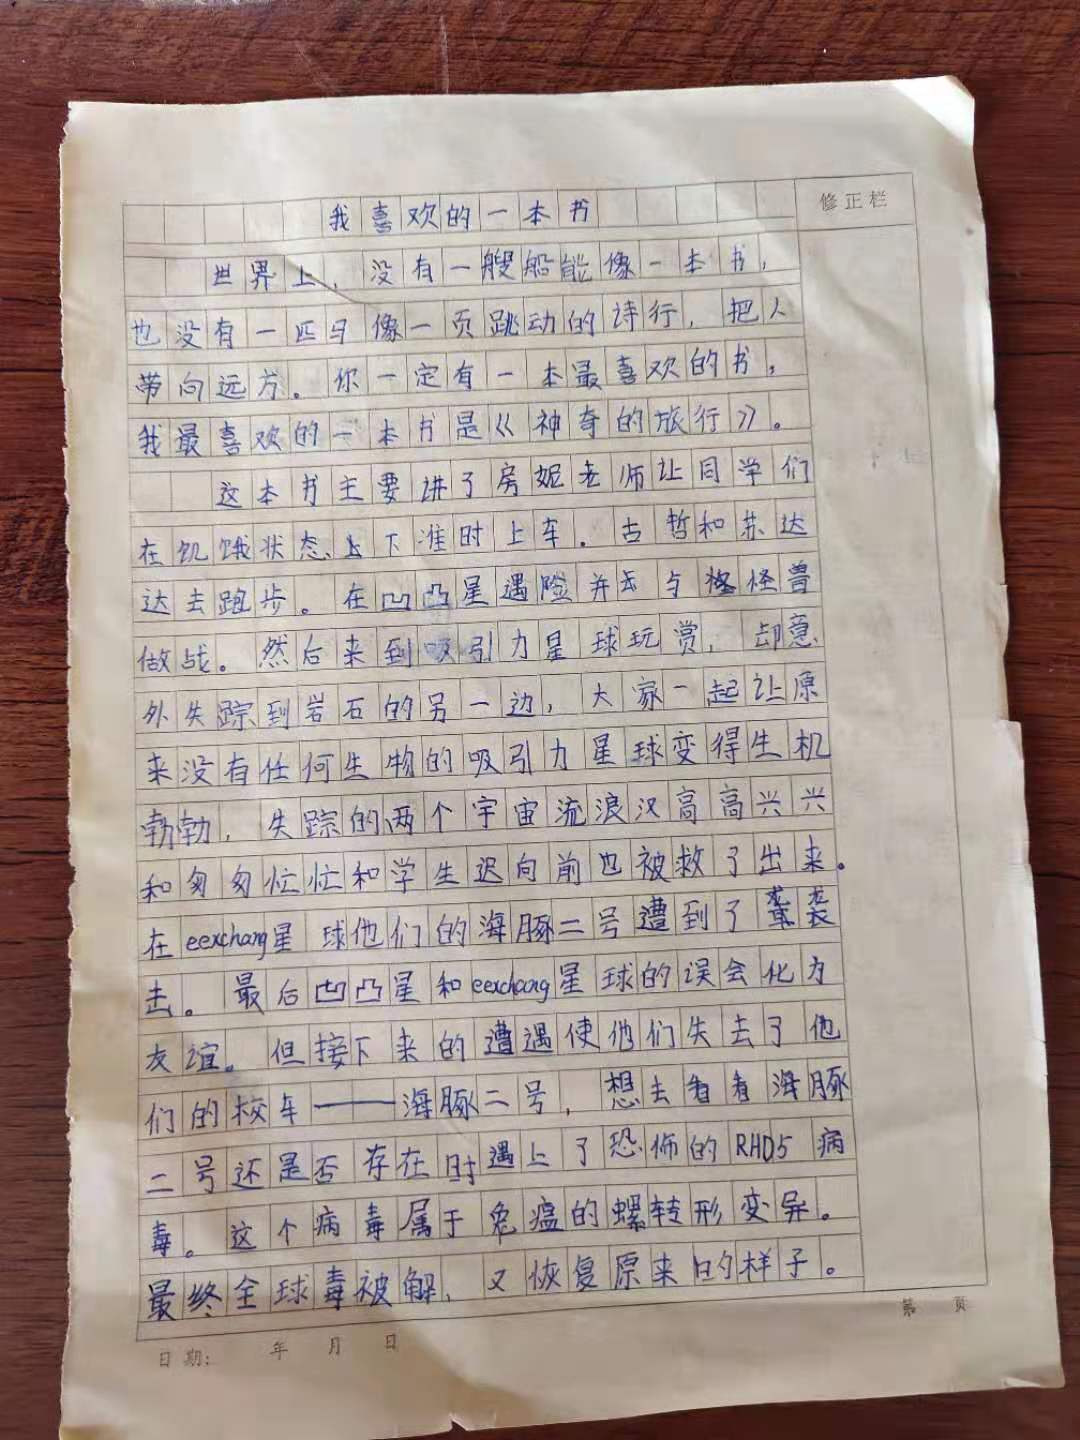 我喜欢的一本书
修正栏
世界上，没有一艘船能像一本书，
也没有一匹马像一页跳动的诗行，把人
带向远方。你一定有一本最喜欢的书，
我最喜欢的一本书是《神奇的旅行》。
这本书主要讲了房妮老师让同学们
在饥饿状态下准时上车。古哲和苏达
达去跑步。在凹凸星遇险并去与怪兽
做战。然后来到吸引力星球玩赏，却意
外失踪到岩石的另一边，大家一起让原
来没有任何生物的吸引力星球变得生机
勃勃，失踪的两个宇宙流浪汉高高兴兴
和匆匆忙忙和学生迟向前也被救了出来。
在eexchang星球他们的海豚二号遭到了袭
击。最后凹凸星和eexchang星球的误会化为
友谊。但接下来的遭遇使他们失去了他
们的校车——海豚二号，想去看看海豚
二号还是否存在时遇上了恐怖的RHD5病
毒。这个病毒属于兔瘟的螺转形变异。
最终全球毒被解，又恢复原来的样子。
日期： 年 月 日
第 页